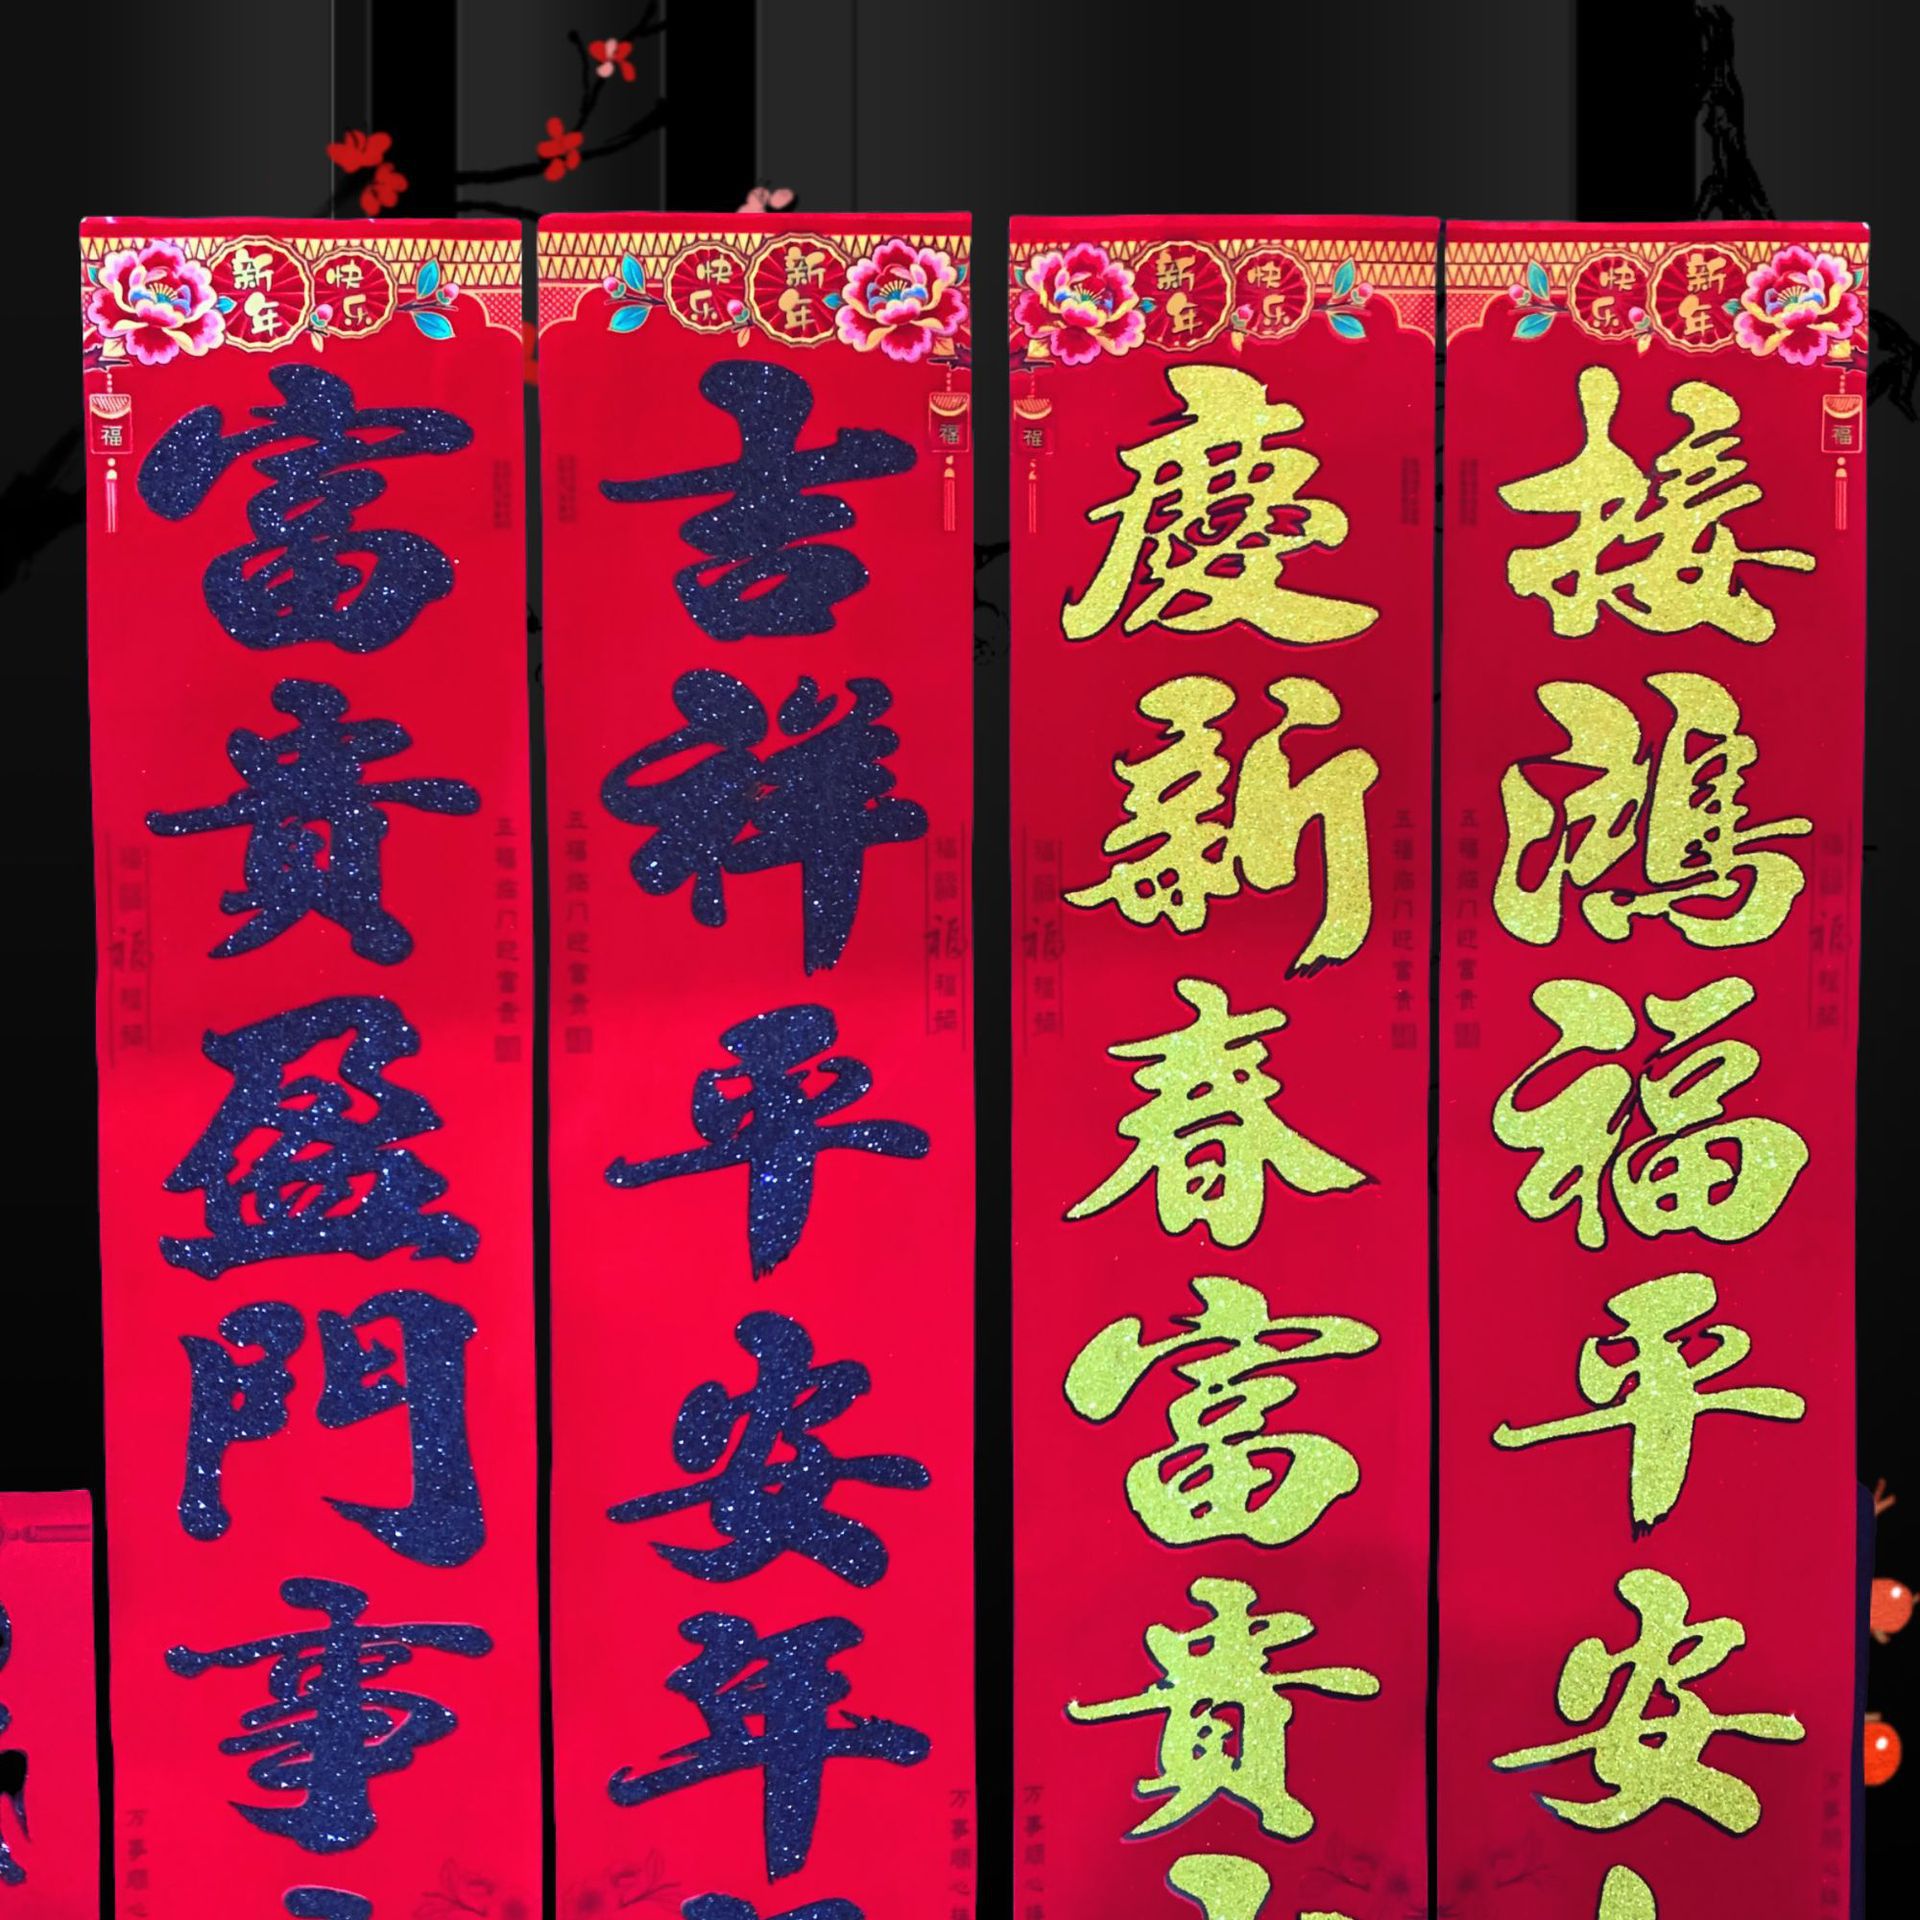 新年快乐
福
富貴盈門事
五福临门迎富贵
万事顺心
新年快乐
福
吉祥平安年
五福临门迎富贵
万事顺心
新年快乐
福
慶新春富貴
五福临门迎富贵
万事顺心
新年快乐
福
接鴻福平安
五福临门迎富贵
万事顺心